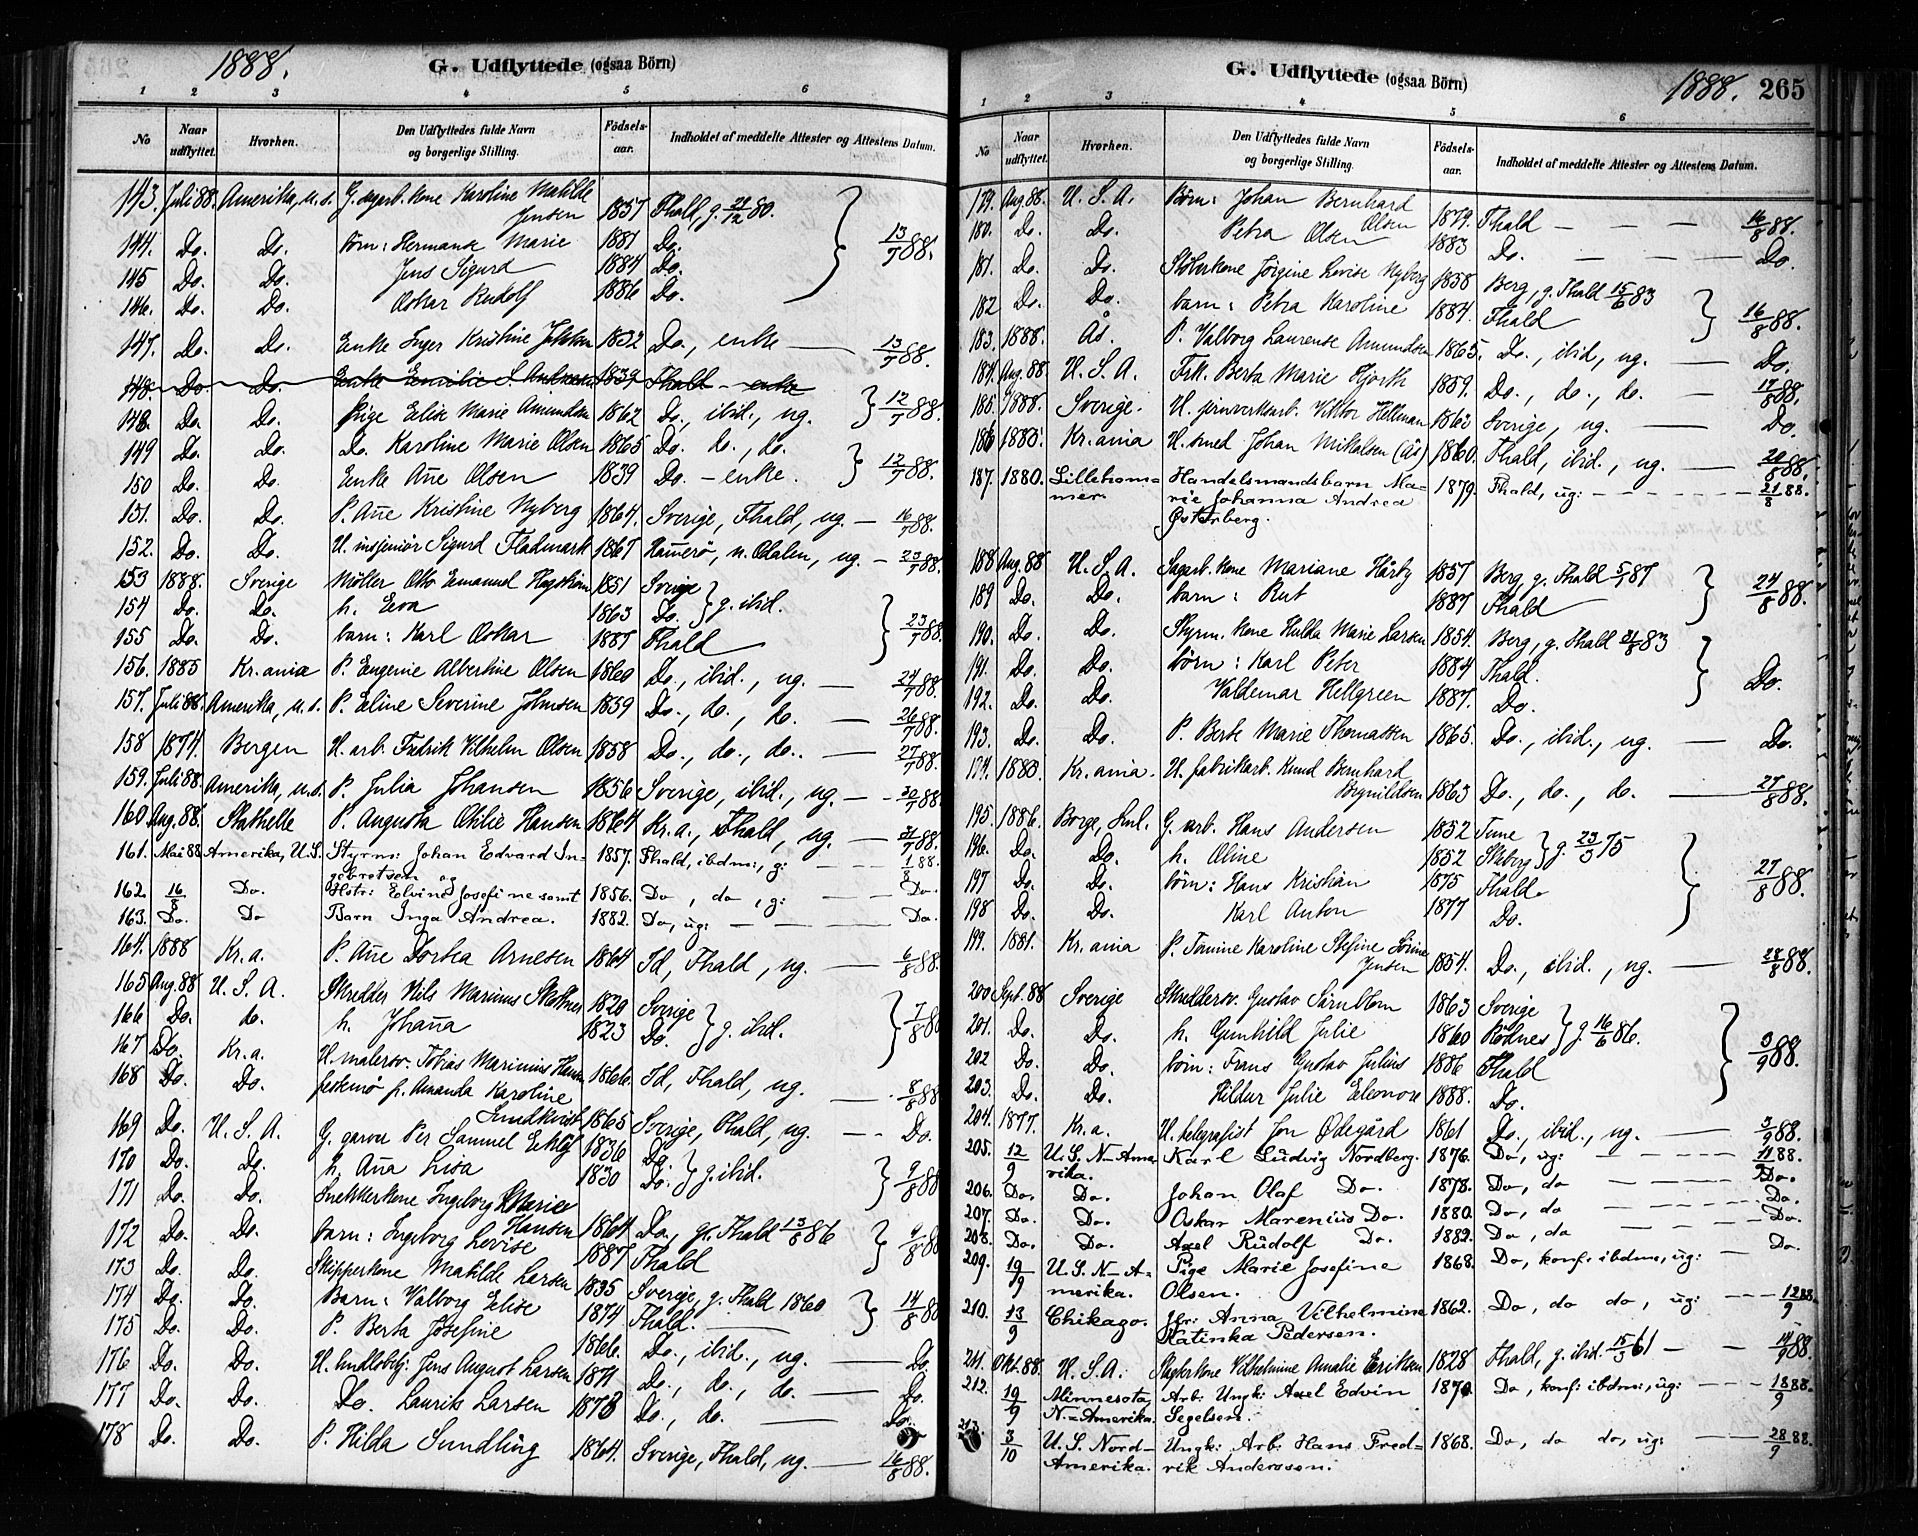 1888.
G. Udflyttede (ogsaa Börn)
1 2 3 4 5 6
No
Naar udflyttet.
Hvorhen.
Den Udflyttedes fulde Navn og borgerlige Stilling.
Födsels-aar.
Indholdet af meddelte Attester og Attestens Datum.
143. Juli 88. Amerika, u.s. G. sagarb. kone Karoline Matilde
Jensen 1857 Fhald, g. 21/12 80.
144. Do. Do. börn: Hermann Marie 1881 Do. 13/7 88.
145 Do. Do. Jens Sigurd 1884 Do.
146. Do. Do. Oskar Rudolf 1886 Do.
147. Do. Do. Enke Inger Kristine 1832 Do., enke — 13/7 88.
148. Do. Do. Enke Emilie S. Andresen 1839 Fhald — enke
148. Do. Do. Pige Elise Marie Amundsen 1862 Do., ibid., ug. 12/7 88.
149 Do. Do. Do. Karoline Marie Olsen 1865 Do. do., do.
150 Do. Do. Enke Ane Olsen 1839 Do. — enke. 12/7 88.
151. Do. Do. P. Ane Kristine Nyberg 1864. Sverige, Fhald, ug. — 16/7 88.
152. Do. Do. U. insjeniör Sigurd Fladmark 1867 n. Odalen, ug. — 23/7 88.
153 1888. Sverige Möller Otto Emanuel 1851 Sverige
154 Do. Do. h. Eva 1863 Do. g. ibid. 23/7 88
155 Do. Do. barn: Karl Oskar 1887 Fhald
156. 1885 Kr.ania P. Eugenie Albertine Olsen 1860 Do., ibid., ug. — 24/7 88.
157. Juli 88. Amerika, u.s. P. Eline Severine Johnsen 1839 Do., do., do. — 26/7 88.
158 1874. Bergen U. arb. Fredrik Vilhelm Olsen 1858 Do., do., do. — 27/7 88.
159. Juli 88. Amerika, u.s. P. Julia Johansen 1856 Sverige, ibid., ug. — 30/7 88.
160 Aug. 88. Stathelle P. Augusta Othilie Hansen 1864 Kr.a., Fhald, ug. — 31/7 88.
161. Mai 88 Amerika, U.S. Styrm: Johan Edvard In- 1857. Fhald, ibdm:, g: — 1/8 88.
gebretsen og
162. 16/8 Do. Hstr: Elvine Josefine samt 1856. Do, do, g: — Do.
163. Do. Do Barn Inga Andrea. 1882. Do, ug: — Do.
164. 1888 Kr.a. P. Ane Dortea Arnesen 1864 Id, Fhald, ug. — 6/8 88.
165 Aug. 88 U. S. A. Skredder Nils Marinus 1820 Sverige
166 Do. do. h. Johana 1823 Do. g. ibid. 7/8 88
167 Do. Kr.a. U. malersv. Tobias Marinius Hansen 1866. Id, Fhald, ug. — 8/8 88
168 Do. Do. fr. Amanda Karoline
Lundkvist 1865 Sverige, Fhald, ug. — Do.
169 Do. U. S. A. G. garver Per Samuel 1836 Do.
170 Do. Do. h. Ana Lisa 1830 Do. g. ibid. 9/8 88
171 Do. Do. Snekkerkone Ingeborg Marie
Hansen 1864 Do., g. Fhald 13/8 86 9/8 88
172 Do. Do. barn: Ingeborg Lovise 1887 Fhald
173 Do. Do. Skipperkone Matilde Larsen 1835 Sverige, g. Fhald 1860 14/8 88
174 Do. Do. Barn: Valborg Elise 1874 Fhald.
175 Do. Do. P. Berta Josefine 1866. Do., ibid., ug. — Do.
176 Do. Do. U. Jens August Larsen 1871 Do., do., do. — Do.
177 Do. Do. Do. Laurits Larsen 1873 Do., do. — Do.
178 Do. Do. P. Hilda Sundling 1864. Sverige, Fhald, ug. — 16/8 88.
G. Udflyttede (ogsaa Börn)
1888. 265
1 2 3 4 5 6
No
Naar udflyttet.
Hvorhen.
Den Udflyttedes fulde Navn og borgerlige Stilling.
Födsels-aar.
Indholdet af meddelte Attester og Attestens Datum.
179. Aug 88. U. S. A. Börn: Johan Bernhard
Olsen 1879. Fhald — 16/8 88.
180. Do. Do. Petra Olsen 1883 Do. — Do.
181. Do. Do. Jörgine Lovise Nyberg 1858 Berg, g. Fhald 15/6 83
182 Do. Do. barn: Petra Karoline 1884. Fhald 16/8 88.
183. 1888. Ås. P. Valborg Laurense Amundsen 1865. Do., ibid, ug. — Do.
184. Aug. 88 U. S. A. Frk. Berta Marie Hjorth 1859. Do., do., do. — 17/8 88.
185. 1888. Sverige. U. jernverksarb. Viktor Hellman 1863 Sverige, ug. — Do.
186 1883. Kr.ania U. smed Johan Mikalsen (Ås) 1860. Fhald, ibid., ug. — 20/8 88.
187. 1880. Lilleham- Handelsmandsbarn Ma- 1879. Fhald, ug: — 21/8 88.
mer. rie Johanna Andrea
Østerberg.
188 Aug. 88 U. S. A. Sagarb. kone Mariane Hårby 1857 Berg, g. Fhald 5/1 87
189 Do. Do. barn: Rut 1887 Fhald 24/8 88.
190. Do. Do. Styrm. kone Hulda Marie Larsen 1854. Berg, g. Fhald 21/8 83
191. Do. Do. börn: Karl Peter 1884 Fhald. Do.
192. Do. Do. Valdemar Hellgreen 1887. Do.
193. Do. Do. P. Berte Marie Thomassen 1865. Do., ibid., ug. — Do.
194. 1880. Kr.ania. U. fabrikarb. Knud Bernhard
Brynildsen 1863 Do., do., do. — 27/8 88.
195. 1886. Borge, Sml. G. arb. Hans Andersen 1852 Tune
196. Do. Do. h. Oline 1852 Skiberg g. 23/3 75 27/8 88.
197 Do. Do. börn: Hans Kristian 1875 Fhald.
198 Do. Do. Karl Anton 1877 Do.
199. 1881. Kr.ania P. Karoline Stefine Sörine
Jensen 1854. Do., ibid., ug. — 28/8 88.
200 Sept. 88 Sverige Skreddersv. Gustav Särnblom 1863 Sverige
201. Do. Do. h. Gunhild Julie 1860 Rödnes g. 16/6 86. 3/9 88.
202 Do. Do. börn: Frans Gustav Julius 1886 Fhald
203. Do. Do. Hildur Julie Eleonore 1888. Do.
204. 1877. Kr.a. U. telegrafist Jon Ödegård 1861 Do., ibid., ug. — 5/9 88.
205. 12/9 U.S. N-Ame- Karl Ludvig Nordberg. 1876. Do, ug: — 11/9 88.
rika.
206. Do. Do. Johan Olaf Do. 1878. Do, do — Do.
207. Do. Do. Oskar Marenius Do. 1880. Do, do — Do.
208. Do. Do. Axel Rudolf Do. 1882. Do, do — Do.
209. 19/9 U.S. N-A- Pige Marie Josefine 1868. Do, konf: ibdm:, ug: — Do.
merika. Olsen.
210. 13/9 Chikago. Jfr: Anna Vilhelmine 1862. Do, do do, ug: — 12/9 88.
Katinka Pedersen.
211. Okt. 88. U. S. A. Slagterkone Vilhelmine Amalie Eriksen 1828 Fhald, g. ibid. 15/3 61 — 14/9 88
212. 19/9 Minnesota, Arb: Ungk: Axel Edvin 1870. Do, konf: ibdm:, ug: — 18/9 88.
N.-Amerika. Segelsen.
213. 3/10 U.S. Nord- Ungk: Arb: Hans Fred- 1868. Do, do do, ug: — 28/9 88.
Amerika. rik Anderssen.